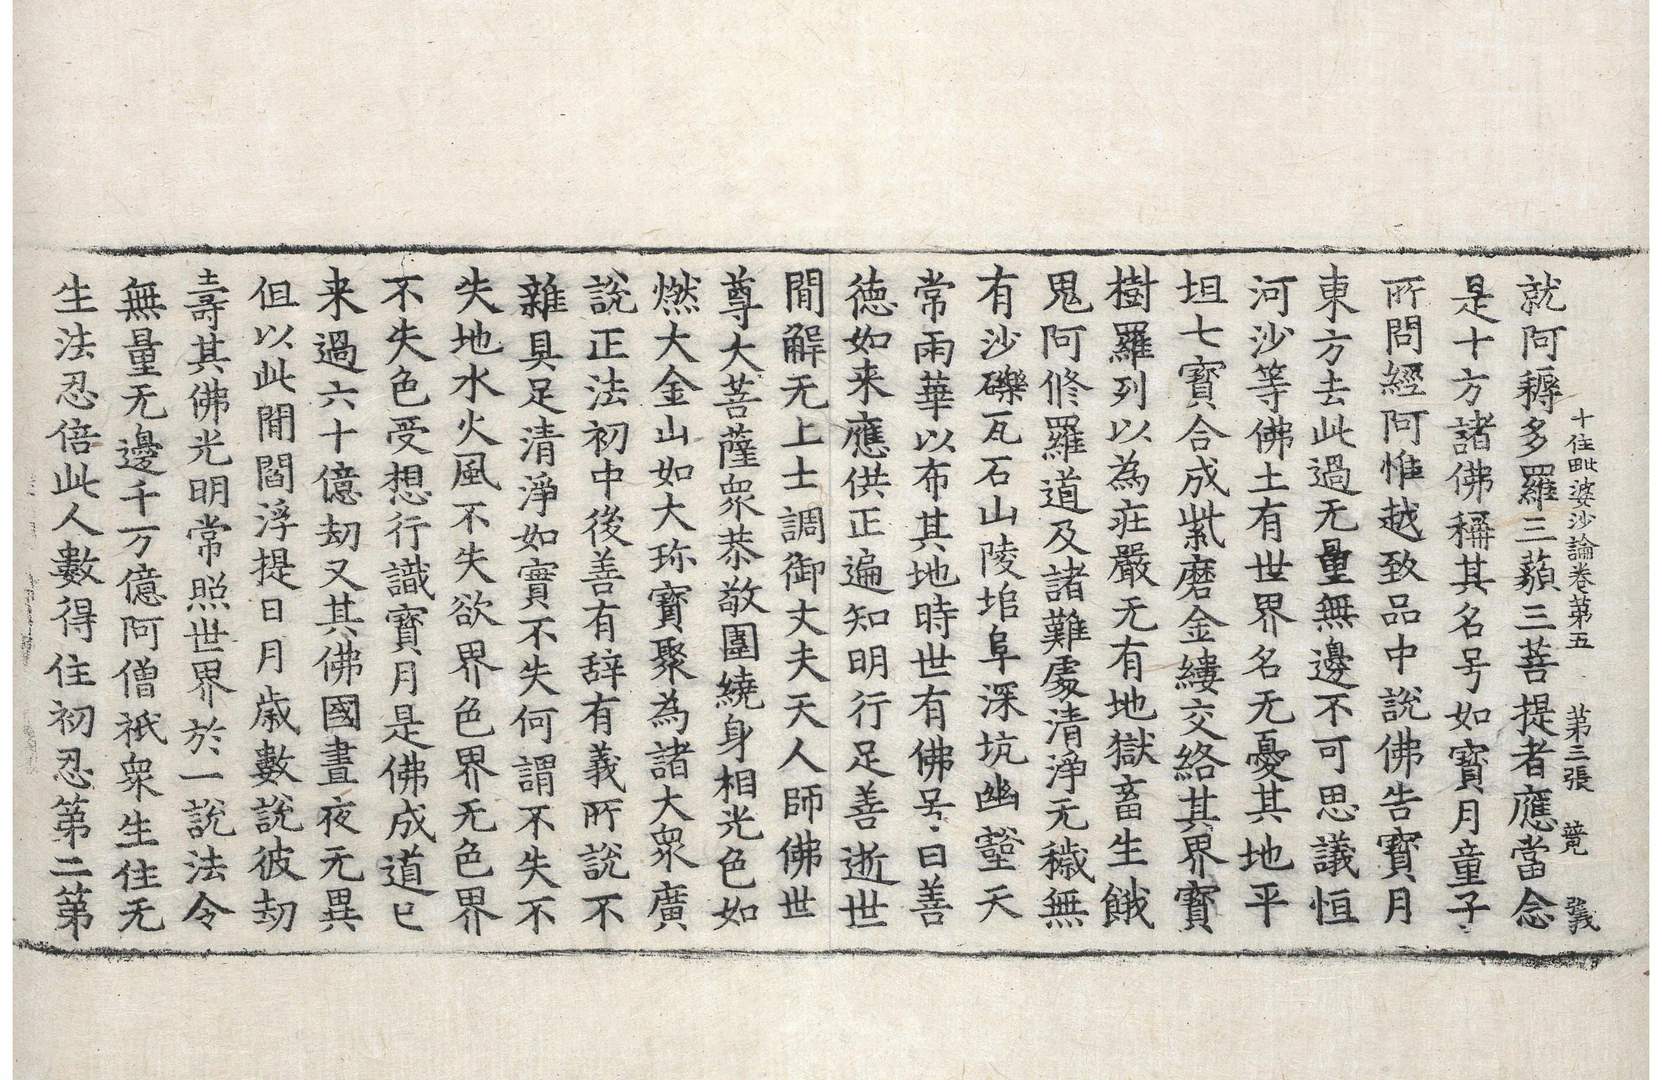 十住毗婆沙論卷第五 第三張 薨 義
就阿耨多羅三藐三菩提者應當念
是十方諸佛稱其名号如寶月童子
所問經阿惟越致品中說佛告寶月
東方去此過无量無邊不可思議恒
河沙等佛土有世界名无憂其地平
坦七寶合成紫磨金縷交絡其界寶
樹羅列以為莊嚴无有地獄畜生餓
鬼阿修羅道及諸難處清淨无穢無
有沙礫瓦石山陵堆阜深坑幽壑天
常雨華以布其地時世有佛号曰善
德如来應供正遍知明行足善逝世
閒解无上士調御丈夫天人師佛世
尊大菩薩衆恭敬圍繞身相光色如
燃大金山如大珎寶聚為諸大衆廣
說正法初中後善有辞有義所說不
雜具足清淨如實不失何謂不失不
失地水火風不失欲界色界无色界
不失色受想行識寶月是佛成道已
来過六十億劫又其佛國晝夜无異
但以此閒閻浮提日月歲數說彼劫
壽其佛光明常照世界於一說法令
無量无邊千万億阿僧祇衆生住无
生法忍倍此人數得住初忍第二第